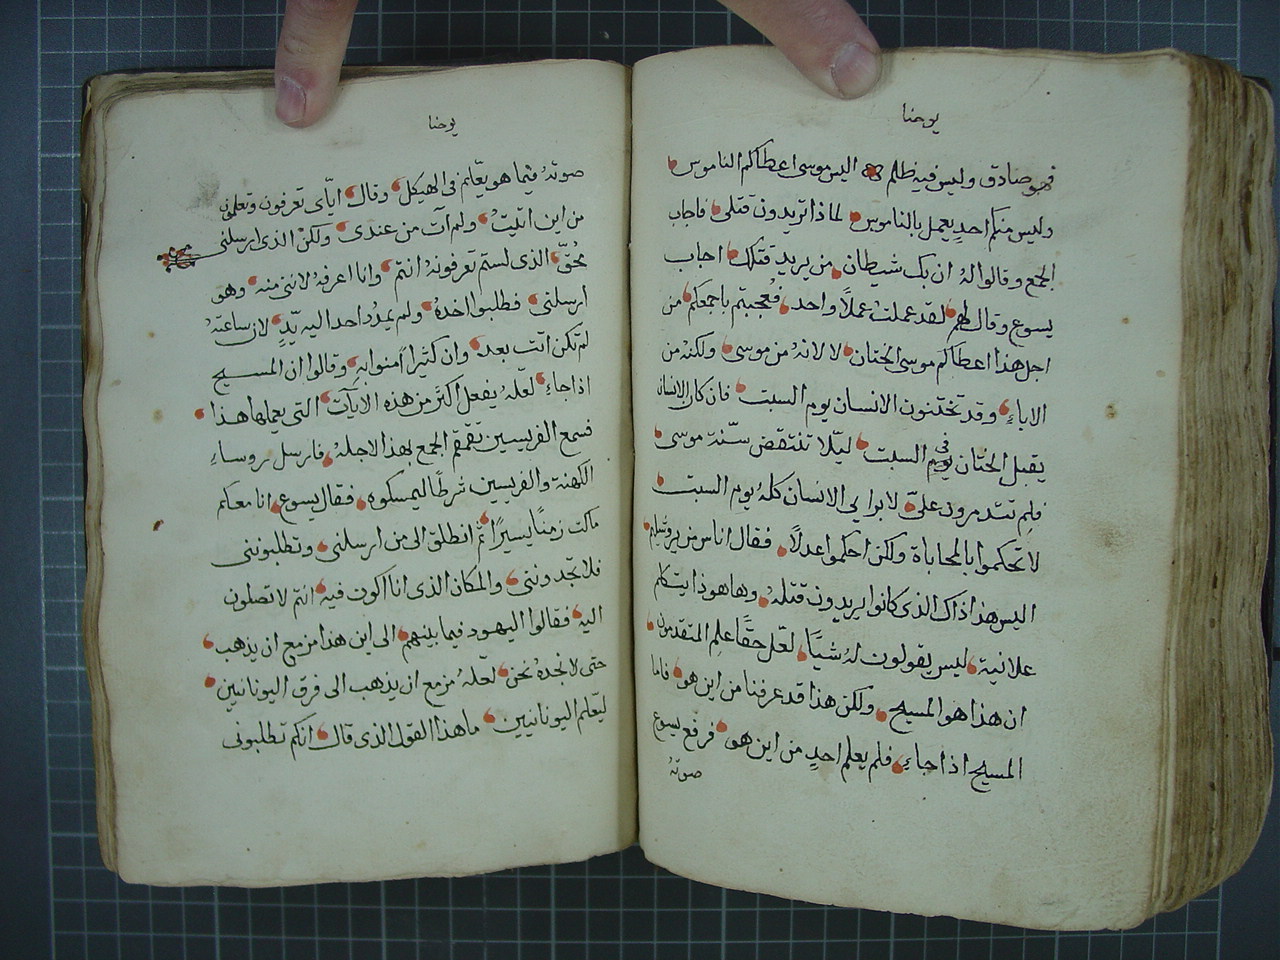 يوحنا
فهو صادق وليس فيه ظلم اليس موسى اعطاكم الناموس
وليس منكم احدٍ يعمل بالناموس لماذا تريدون قتلى فاجاب
الجمع وقالوا لهُ ان بك شيطان من يريد قتلك اجاب
يسوع وقال لهم لقد عملت عملاً واحد فعجبتم باجمعكم من
اجل هذا اعطاكم موسى الختان لا لانهُ من موسى ولكنهُ من
الاباءِ وقد تختنون الانسان يوم السبت فان كان الانسان
يقبل الختان في يوم السبت ليلا تنتقض سنّة موسى
فلِم تتدمرون علىّ لابرايى الانسان كلهُ يوم السبت
لا تحكموا بالمحاباة ولكن احكموا عدلاً فقال اناس من يروشليم
اليس هذا ذاك الذى كانوا يريدون قتلهُ وها هوذا يتكلم
علانية ليس يقولون لهُ شياً لعّل حقاً علم المتقدمون
ان هذا هو المسيح ولكن هذا قد عرفنا من اين هو فاما
المسيح اذا جاءِ فلم يعلم احدٍ من اين هو فرفع يسوع
صوتهُ
يوحنا
صوتهُ فيما هو يعّلم فى الهيكل وقال ايّاى تعرفون وتعلمون
من اين اتيتُ ولم آت من عندى ولكن الذى ارسلنى
محُقّ الذى لستم تعرفونهُ انتم وانا اعرفهُ لاننى منه وهو
ارسلنى فطلبوا اخدهُ ولم يمدُد احدا اليه يدٍ لان ساعتهُ
لم تكن اتت بعد وان كثيرا امنوا بهِ وقالوا ان المسيح
اذا جاءِ لعّله يفعل اكثر من هذه الايآت التى يعملها هذا
فسمع الفريسيين تقمقم الجمع بهذا لاجلهُ فارسل روساءِ
الكهنة والفريسين شرطًا ليمسكوه فقال يسوع انا معكم
ماكث زمنًا يسيرًا ثم انطلق الى من ارسلنى وتطلبوننى
فلا تجدوننى والمكان الذى انا اكون فيه انتم لا تصلون
اليه فقالوا اليهود فيما بينهم الى اين هذا مزمع ان يذهب
حتى لا نجدهُ نحن لعّلهُ مزمع ان يذهب الى فرق اليونانيين
ليعّلم اليونانيين ما هذا القول الذى قال انكم تطلبونى